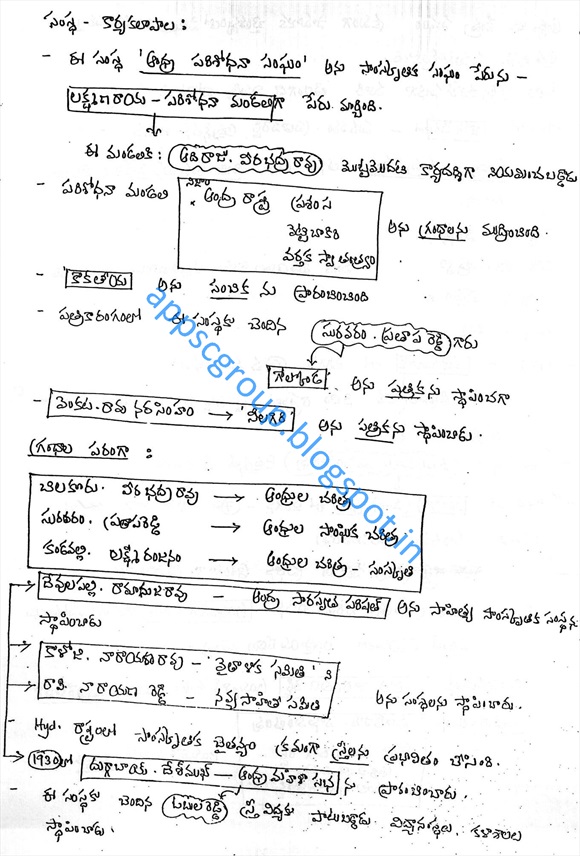 సంస్థ - కార్యకలాపాలు :
- ఈ సంస్థ 'ఆంధ్ర పరిశోధనా సంఘం' అను సాంస్కృతిక సంఘం పేరును -
లక్ష్మణరాయ - పరిశోధనా మండలిగా పేరు మార్చింది.
ఈ మండలికి : ఆదిరాజు. వీరభద్రరావు మొట్టమొదటి కార్యదర్శిగా నియమించబడ్డాడు
- పరిశోధనా మండలి నిజాం ఆంధ్ర రాష్ట్ర ప్రశంస
వెట్టిచాకిరి అను గ్రంథాలను ముద్రించింది.
వర్తక స్వాతంత్ర్యం
- కాకతీయ అను సంచికను ప్రారంభించింది
- పత్రికారంగంలో ఈ సంస్థకు చెందిన సురవరం. ప్రతాపరెడ్డి గారు
గోల్కొండ అను పత్రికను స్థాపించగా
- వెంకట. రావు నరసింహం → 'నీలగిరి' అను పత్రికను స్థాపించాడు.
గ్రంథాల పరంగా :
చిలకూరు. వీరభద్రరావు → ఆంధ్రుల చరిత్ర
సురవరం. ప్రతాపరెడ్డి → ఆంధ్రుల సాంఘిక చరిత్ర
కండవల్లి. లక్ష్మీరంజనం → ఆంధ్రుల చరిత్ర - సంస్కృతి
దేవులపల్లి. రామానుజరావు - ఆంధ్ర సారస్వత పరిషత్ అను సాహిత్య సాంస్కృతిక సంస్థను
స్థాపించాడు
కాళోజి. నారాయణరావు - 'వైతాళిక సమితి' ని
రావి. నారాయణ రెడ్డి - నవ్య సాహితీ సమితి అను సంస్థలను స్థాపించారు.
- Hyd. రాష్ట్రంలో సాంస్కృతిక చైతన్యం క్రమంగా స్త్రీలను ప్రభావితం చేసింది.
1930లో దుర్గాబాయ్. దేశ్‌ముఖ్ - ఆంధ్ర మహిళా సభ ను ప్రారంభించారు.
- ఈ సంస్థకు చెందిన స్త్రీ విద్యకు పాటుబడ్డాడు. విద్యాసంస్థలు, కళాశాలలు
స్థాపించాడు.
appscgroup.blogspot.in